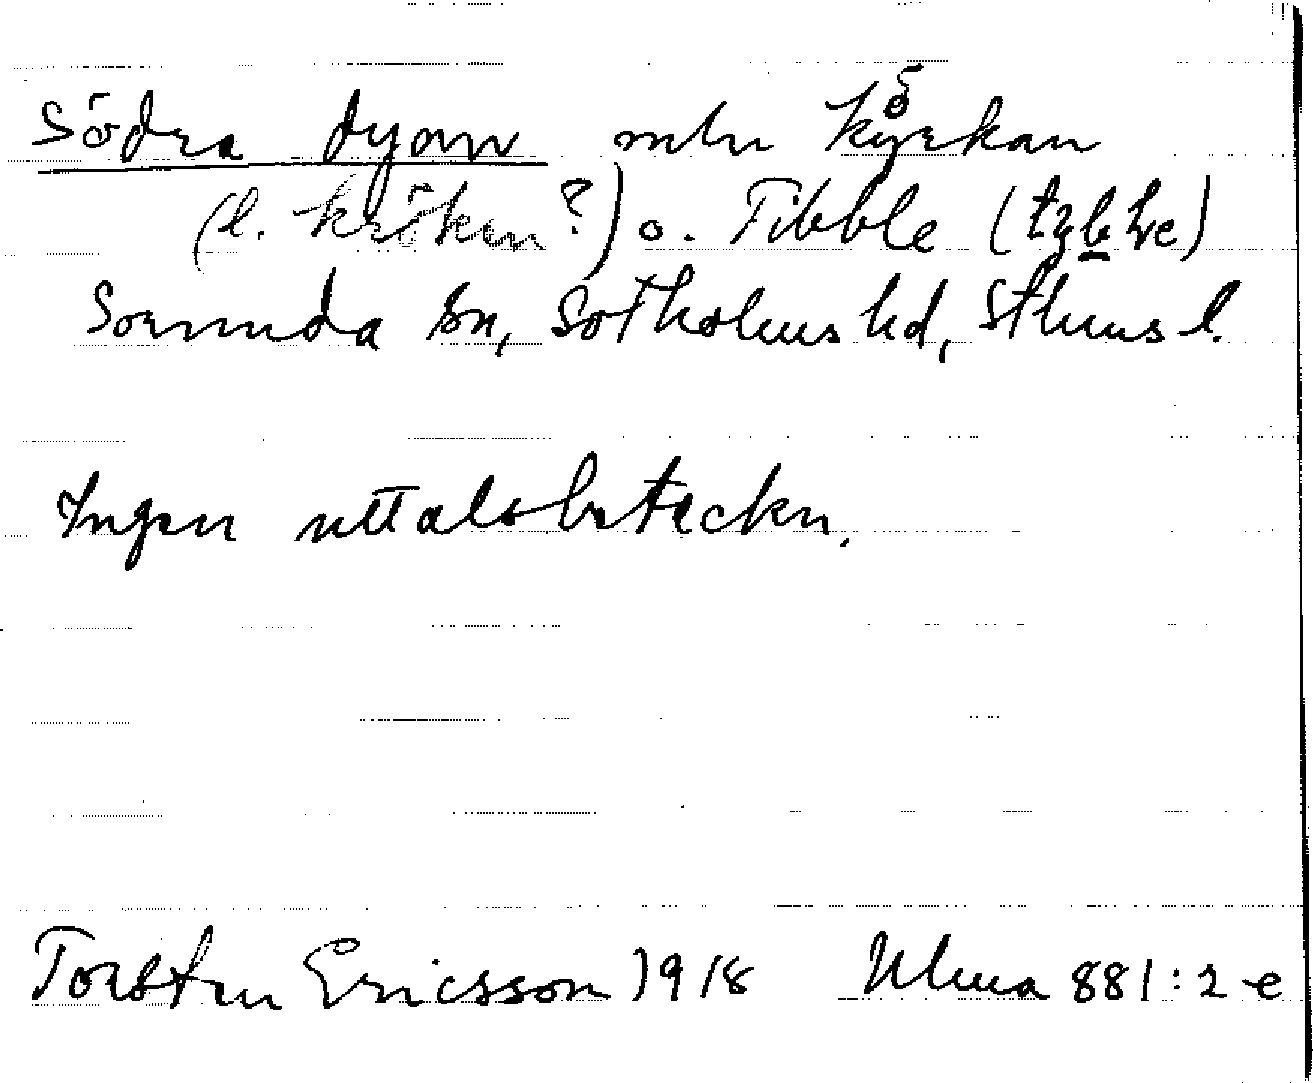 Södra dyarn mln kyrkan
(l. kröken?) o. Tibble (tybble)
Sorunda sn, Sotholms hd, Sthms l.
Ingen uttalsbeteckn.
Torsten Ericsson 1918 Ulma 881:2 e